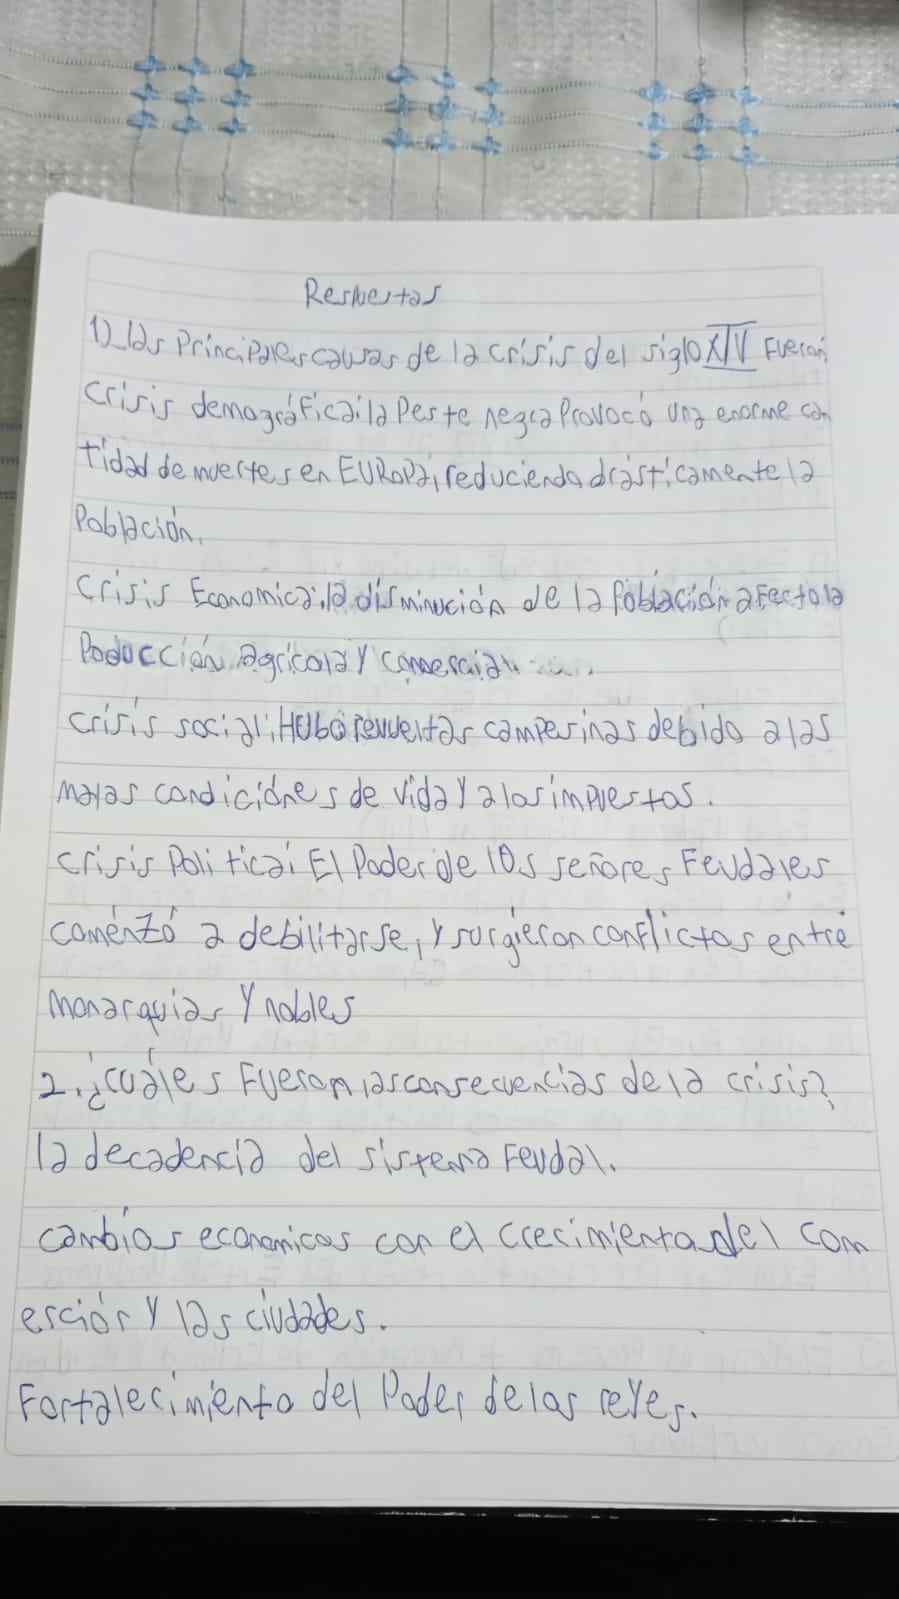 Respuestas
1)_las Principales causas de la crisis del siglo XIV Fueron
crisis demográfica: la Peste negra Provocó una enorme can
tidad de muertes en EUROPa, reduciendo drásticamente la
Población.
crisis Economica: la disminución de la Población afecto la
Poducción agricola y comercial
crisis social: Hubo revueltas campesinas debido a las
malas condiciónes de vida y a los impuestos.
crisis Politica: El Poder de los señores Feudales
comenzó a debilitarse, y surgieron conflictos entre
monarquias y nobles
2. ¿cuáles Fueron las consecuencias de la crisis?
la decadencia del sistema Feudal.
cambios economicos con el crecimiento del com
erciór y las ciudades.
Fortalecimiento del Poder de los reyes.